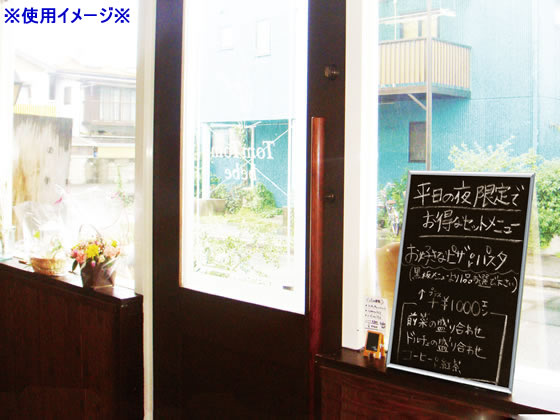 ※使用イメージ※
Tom Tom
bebe
平日の夜限定で
お得なセットメニュー
お好きなピザorパスタ
(黒板メニューより1品お選び下さい)
↑プラス
+¥1000で
前菜の盛り合わせ
ドルチェの盛り合わせ
コーヒーor紅茶